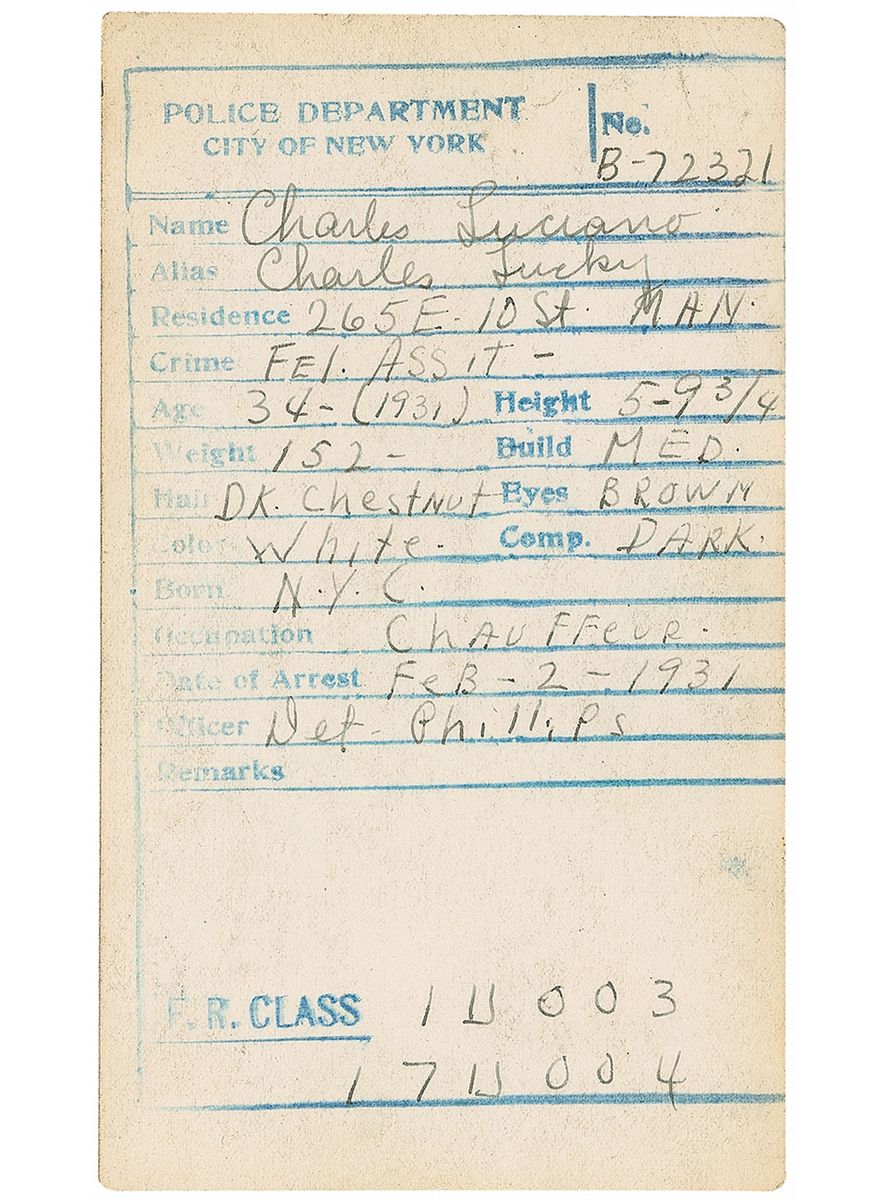 POLICE DEPARTMENT
CITY OF NEW YORK
No.
B-72321
Name Charles Luciano
Alias Charles Lucky
Residence 265 E. 10 St. MAN.
Crime FEl. ASSlT -
Age 34 - (1931) Height 5-9 3/4
Weight 152 - Build MED.
Hair DK. ChestNut Eyes BROWN
Color White. Comp. DARK.
Born N.Y.C.
Occupation ChAUFFeUR.
Date of Arrest FeB - 2 - 1931
Officer Det - Phillips
Remarks
F. R. CLASS 1 U 0 0 3
1 7 U 0 0 4